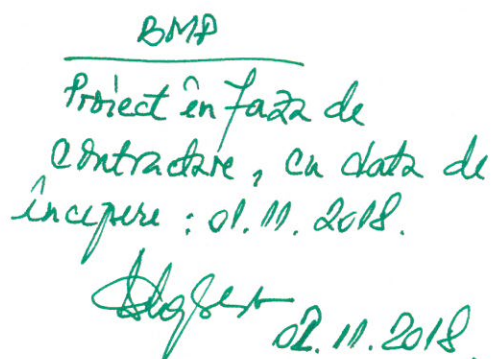 BMP
Proiect în faza de
contractare, cu data de
începere : 01.11.2018.
02.11.2018.